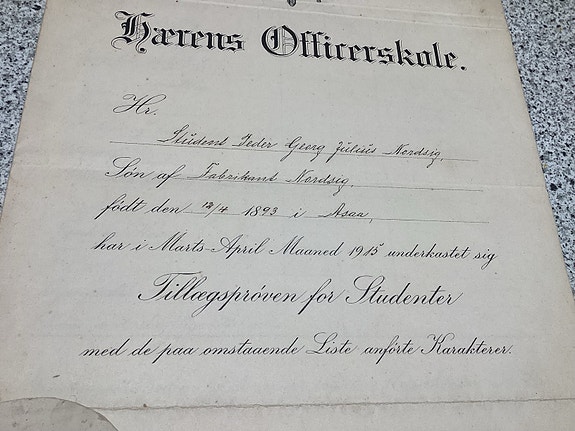 Hærens Officerskole.
Hr.
Student Peder Georg Julius Nordsig,
Søn af Fabrikant Nordsig,
født den 12/4 1893 i Asaa,
har i Marts-April Maaned 1915 underkastet sig
Tillægsprøven for Studenter
med de paa omstaaende Liste anførte Karakterer.